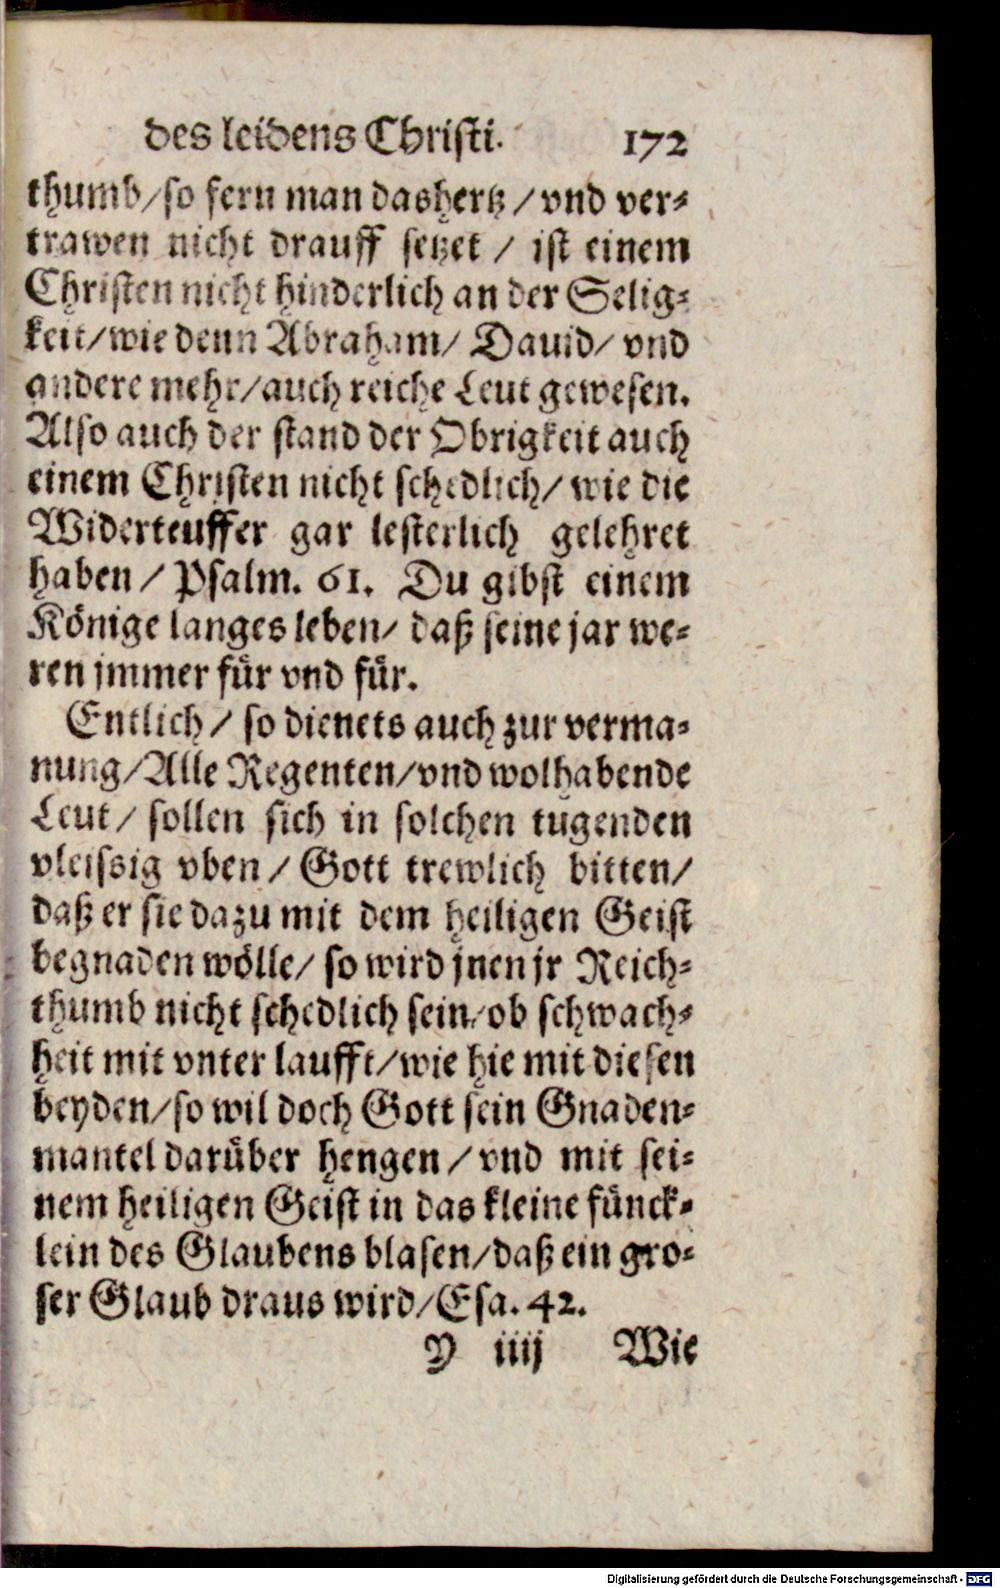 des leidens Christi. 172
thumb/so fern man das hertz/vnd ver-
trawen nicht drauff setzet / ist einem
Christen nicht hinderlich an der Selig-
keit/wie denn Abraham/ Dauid/ vnd
andere mehr/auch reiche Leut gewesen.
Also auch der stand der Obrigkeit auch
einem Christen nicht schedlich/ wie die
Widerteuffer gar lesterlich gelehret
haben / Psalm. 61. Du gibst einem
Könige langes leben/ daß seine jar we-
ren jmmer für vnd für.
Entlich / so dienets auch zur verma-
nung/Alle Regenten/vnd wolhabende
Leut/ sollen sich in solchen tugenden
vleissig vben / Gott trewlich bitten/
daß er sie dazu mit dem heiligen Geist
begnaden wölle/ so wird jnen jr Reich-
thumb nicht schedlich sein/ob schwach-
heit mit vnter laufft/wie hie mit diesen
beyden/so wil doch Gott sein Gnaden-
mantel darüber hengen/vnd mit sei-
nem heiligen Geist in das kleine fünck-
lein des Glaubens blasen/daß ein gro-
ser Glaub draus wird/Esa. 42.
Y iiij Wie
Digitalisierung gefördert durch die Deutsche Forschungsgemeinschaft - DFG